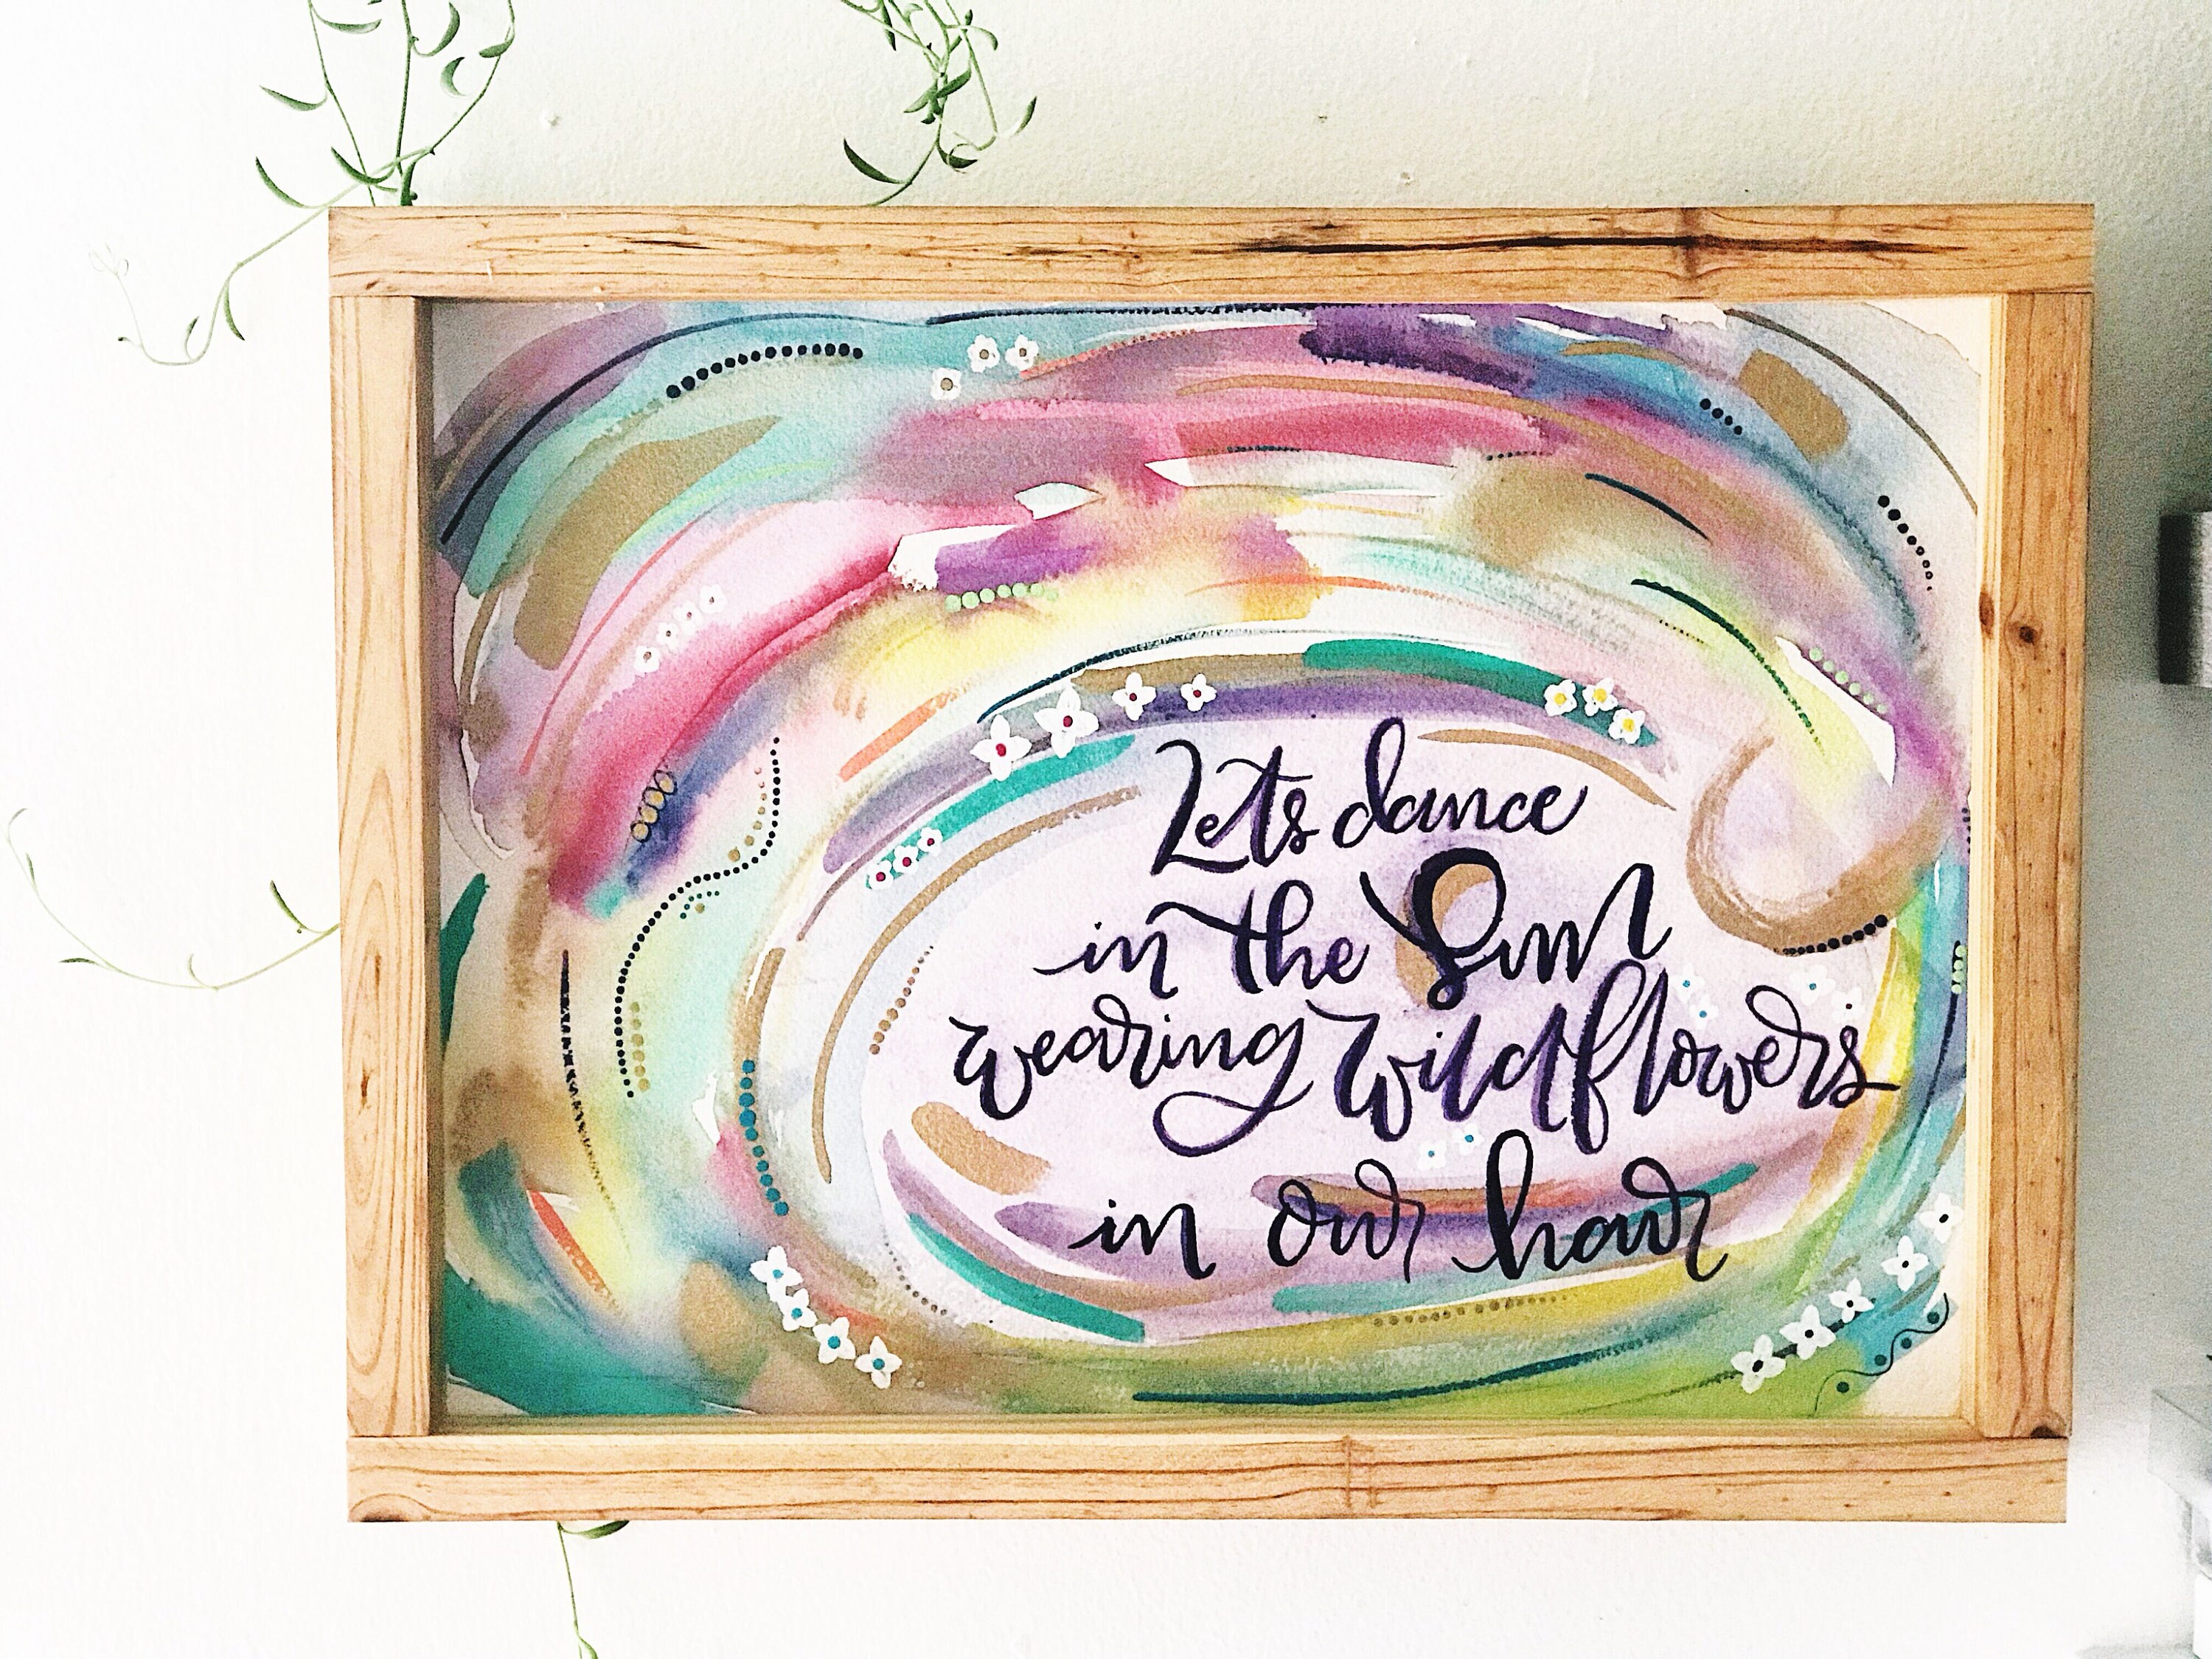 Lets dance
in the Sun
wearing wildflowers
in our hair